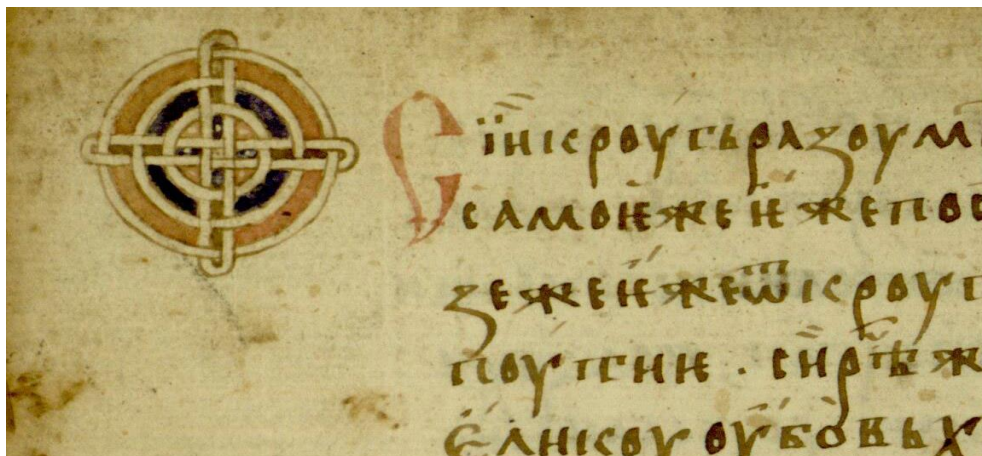 Сїи кроугь разоум
самои же и же пос
ꙁе же и же ѿ кроуг
поутни · сирѣ ж
елико оубовьх